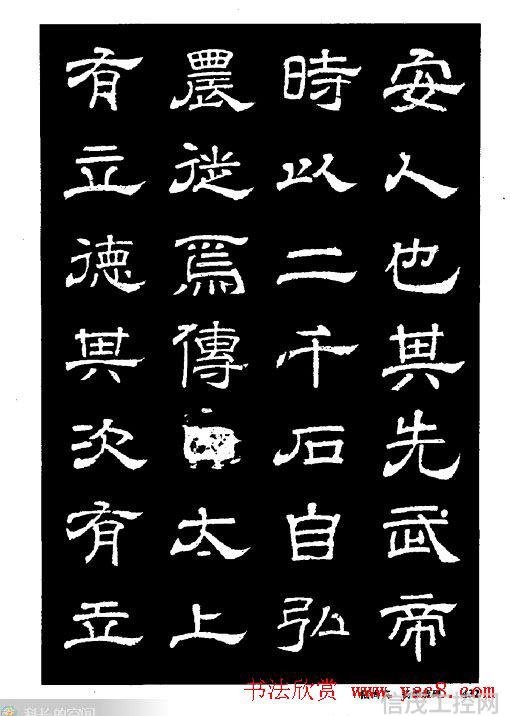 安人也其先武帝
時以二千石自弘
農徙焉傳太上
有立德其次有立
书法欣赏 www.yac8.com
信茂工控网
科长的空间